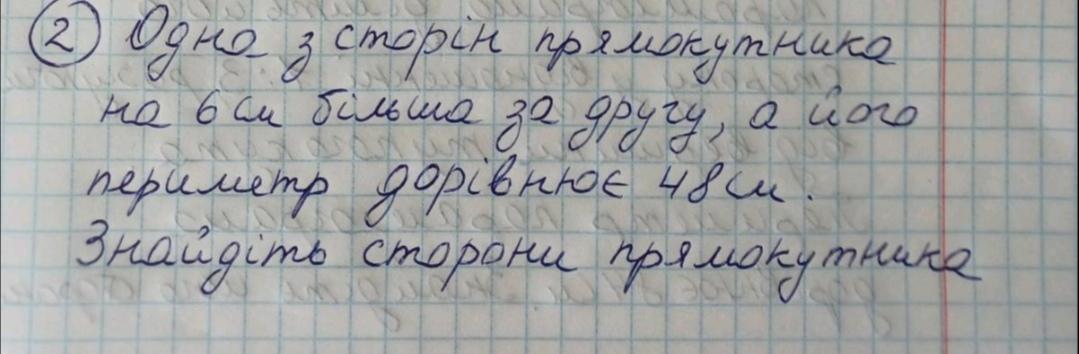 2 Одна з сторін прямокутника
на 6 см більша за другу, а його
периметр дорівнює 48 см.
Знайдіть сторони прямокутника